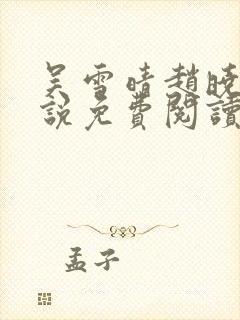 吴雪晴趙曉
說免費閱讀
孟子